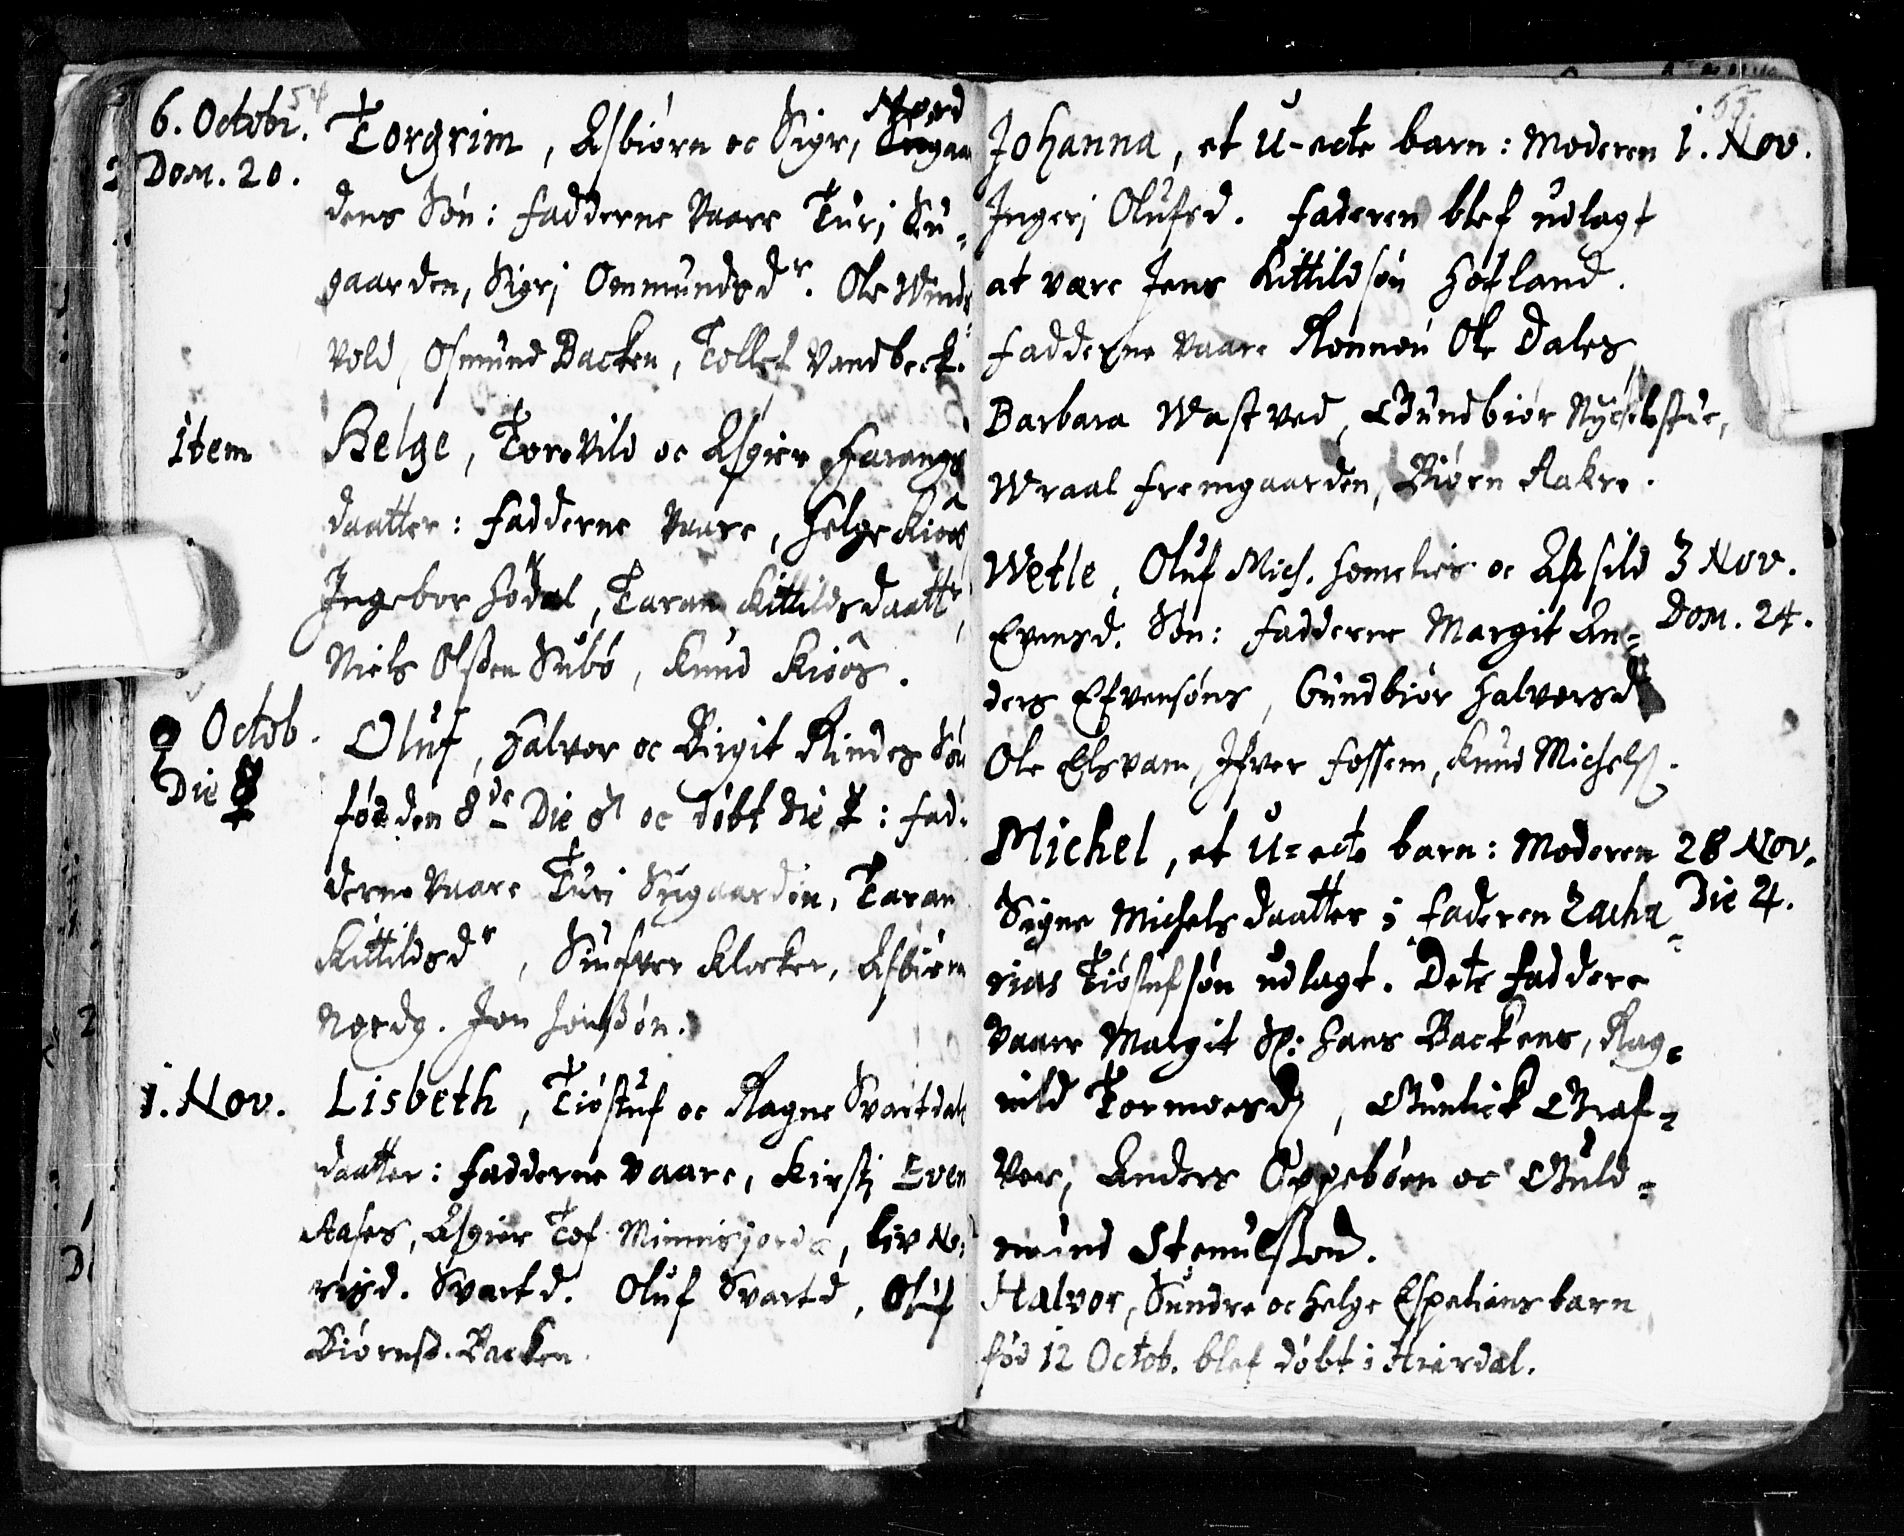 54
6. Octobr. Torgrim, Asbiørn oc Sigri Nord
Dom. 20.
dens Søn: fadderne vaare Turi Su-
gaarden, Sigri Ommundsdr. Ole Winds
vold, Osmund Backen, Tollef Vandbeck.
Item Helge, Torevild oc Asgier Farangs
daatter: fadderne vaare, Helge Kiøs
Ingebor Jødal, Taran Kittildsdaattr,
Niels Olssen Subø, Knud Kiøs.
9 Octob. Oluf, Halvor oc Birgit Rindes Søn
Die ☿
fød den 8de Die ♂ oc døbt die ☿: fad-
derne vaare Turi Sugaarden, Taran
Kittildsdr, Siufver Klocker, Asbiørn
Nordg. Jon Jonssøn.
1. Nov. Lisbeth, Tiøstuf oc Ragne Svartdals
daatter: fadderne vaare, Kirsti Even
Aases, Asgier Tof Minnesjords, Liv No-
risd. Svartd. Oluf Svartd, Oluf
Biørnss. Backen.
55
Johanna, et U-ecte barn: Moderen 1. Nov.
Ingeri Olufsd. Faderen blef udlagt
at være Jens Kittildsøn Høfland.
Fadderne vaare Rønnou Ole Dales,
Barbara Wastved, Gundbiør Nyckelstue,
Wraal fremgaarden, Biørn Aakre.
Wetle, Oluf Mich. Homelies oc Assild 3 Nov.
Evensd. Søn: fadderne Margit An- Dom. 24.
ders Efvensøns, Gundbiør Halvorsd
Ole Elsvam, Ifver Fossem, Knud Michelss.
Michel, et U-ecte barn: Moderen 28 Nov.
Signe Michelsdaatter; faderen Zacha- Die ♃.
rias Tiøstufsøn udlagt. Dets faddere
vaare Margit Sr: Hans Backens, Rag-
nild Tormoesd, Gunlick Graf-
ver, Anders Oppebøen oc Guld-
mund Stenulssøn.
Halvor, Sundre oc Helge Espeliens barn
fød 12 Octob. blef døbt i Hierdal.